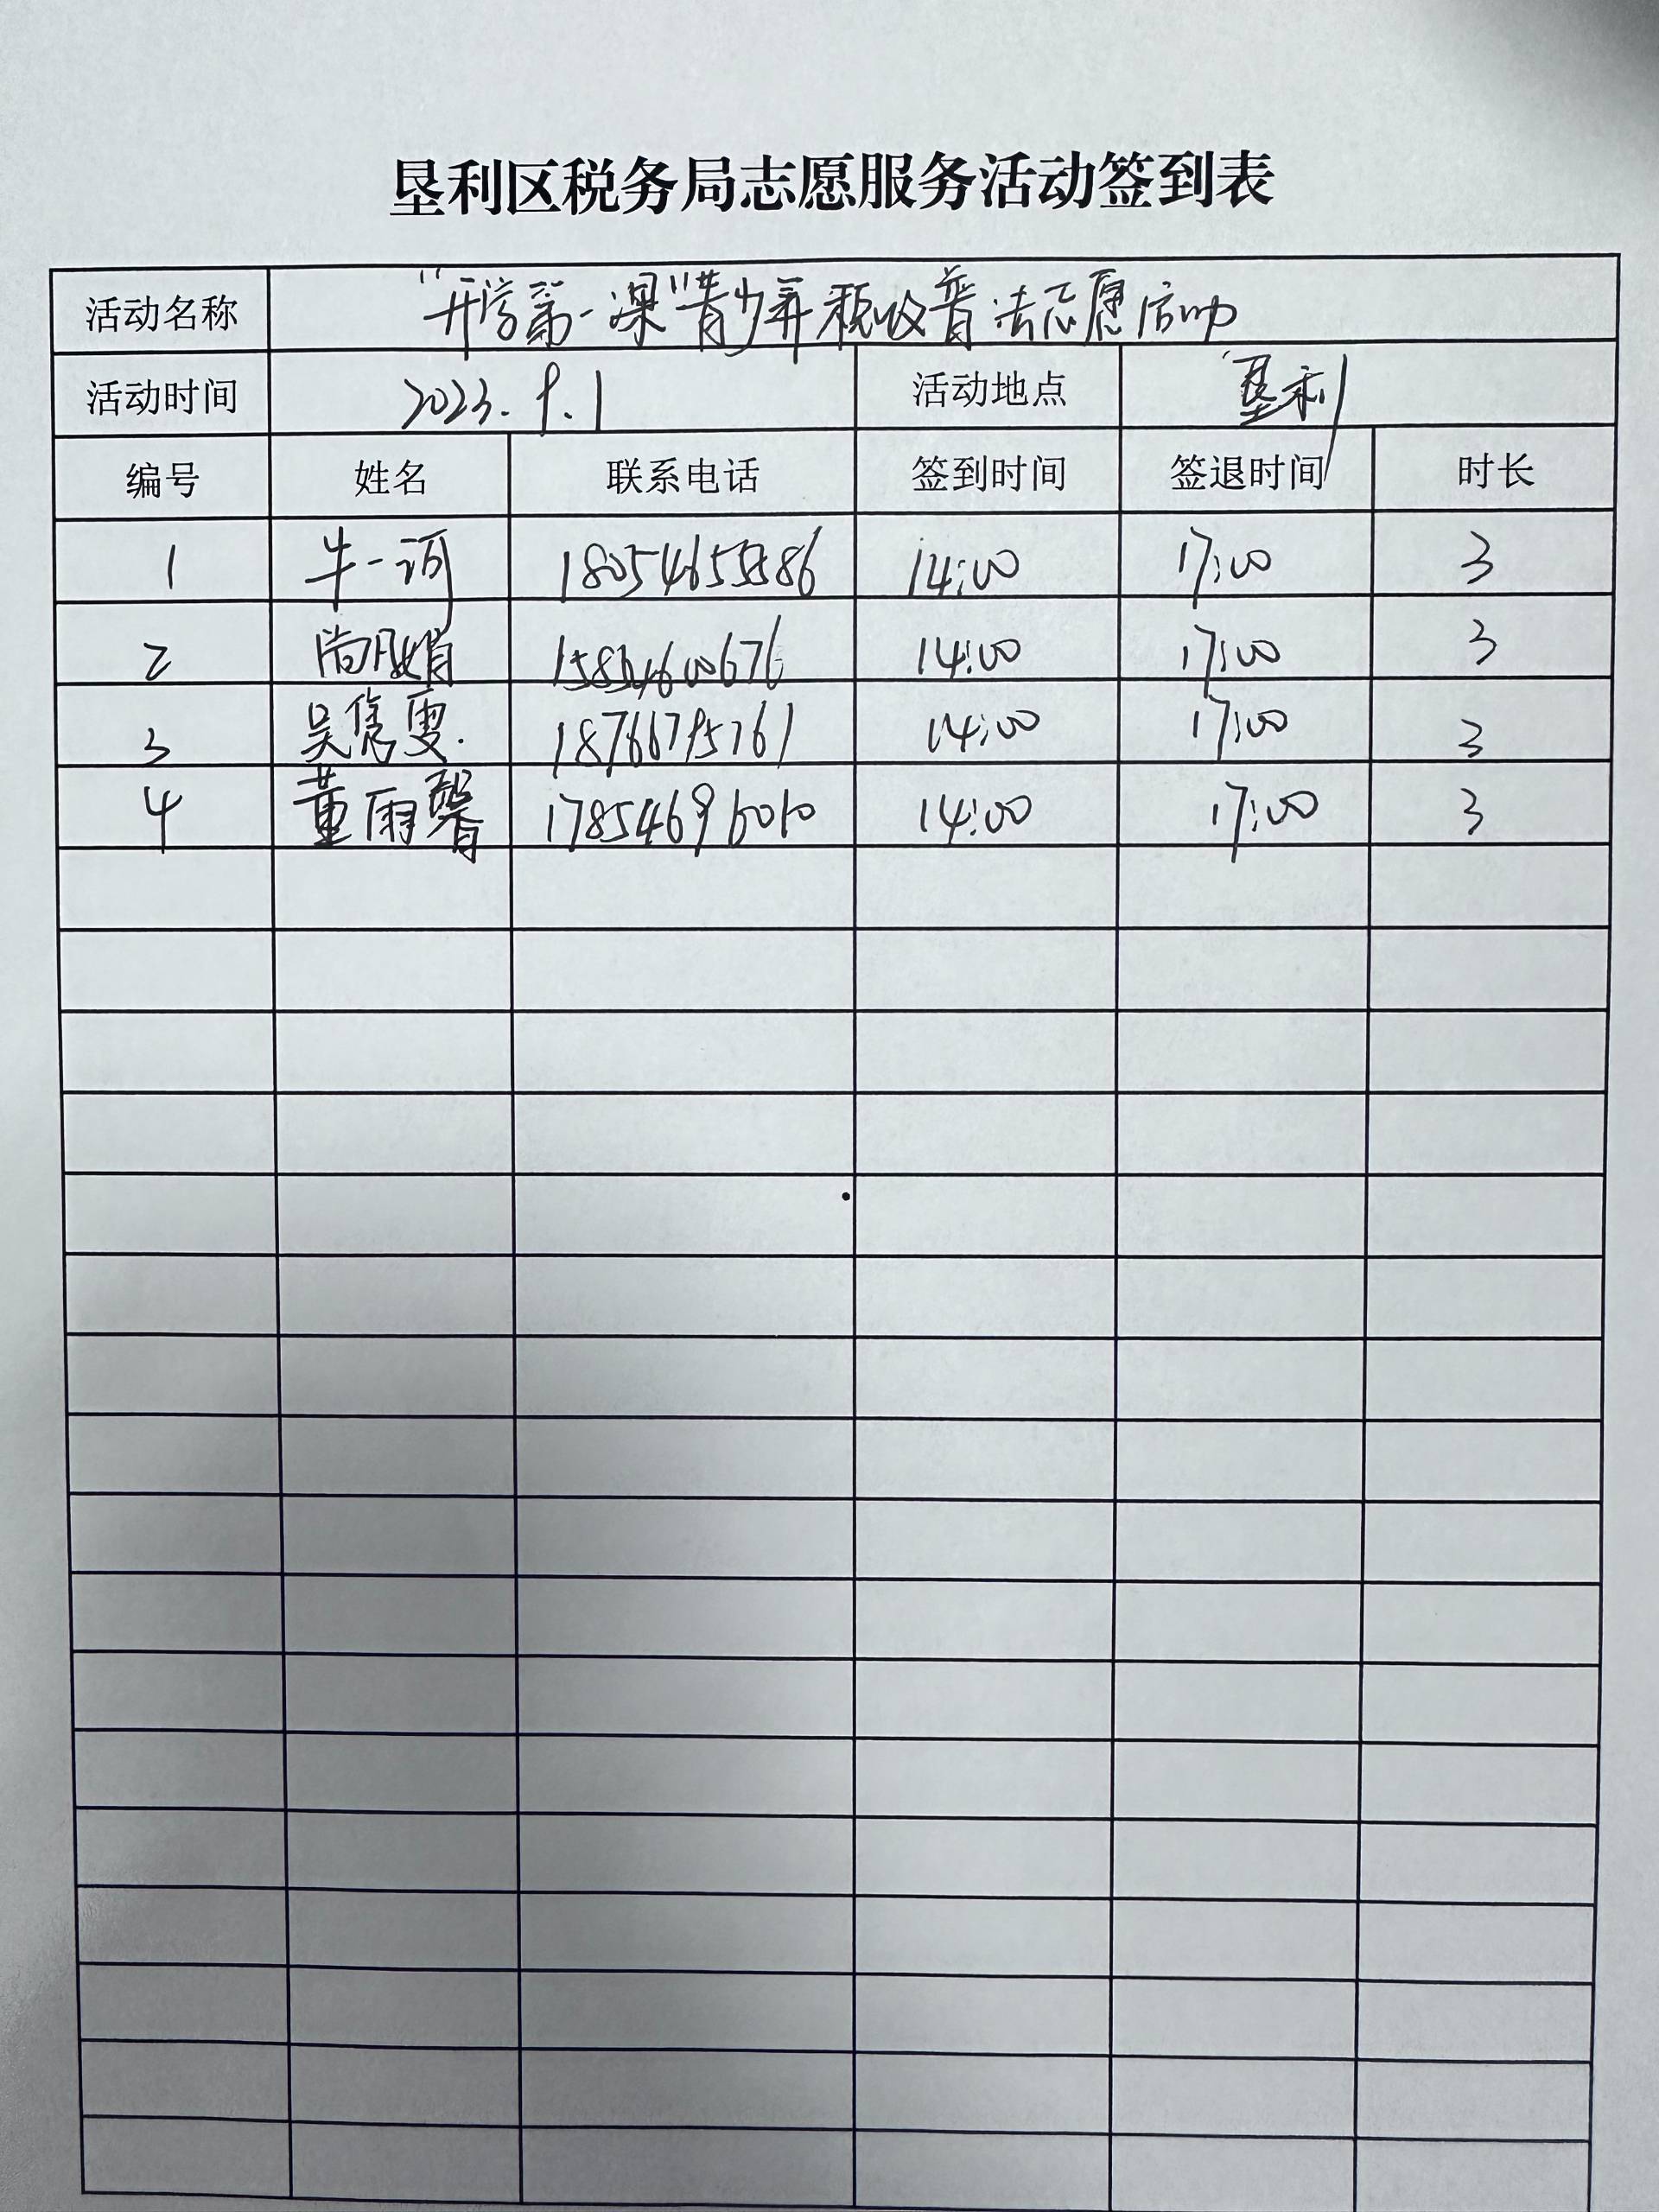 垦利区税务局志愿服务活动签到表
活动名称 "开学第一课"青少年税收普法志愿活动
活动时间 2023.9.1 活动地点 垦利
编号 姓名 联系电话 签到时间 签退时间 时长
1 牛一诃 14:00 17:00 3
2 尚月娟 15854600676 14:00 17:00 3
3 吴隽雯. 18766795761 14:00 17:00 3
4 董雨馨 17854696010 14:00 17:00 3